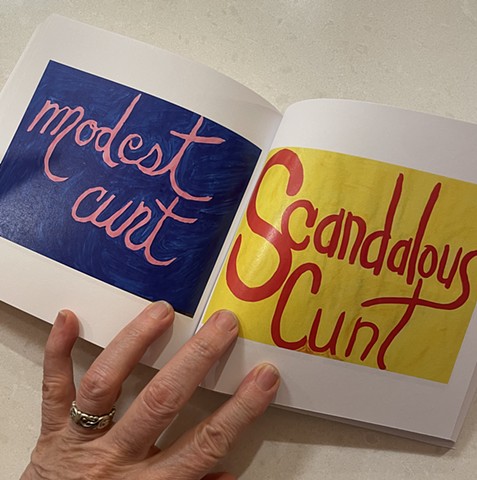 modest
cunt
Scandalous
Cunt